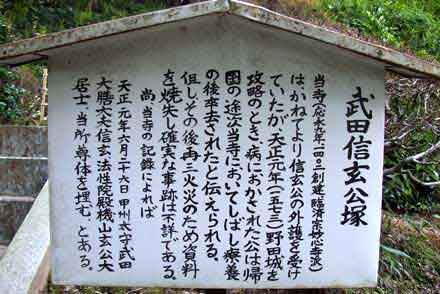 武田信玄公塚
当寺(応永九年一四〇二創建臨済宗妙心寺派)
は、かねてより信玄公の外護を受け
ていたが、天正元年(一五七三)野田城を
攻略のとき、病におかされた公は帰
国の途次当寺においてしばし療養
の後卒去されたと伝えられる。
但しその後再三火災のため資料
を焼失し確実な事跡は不詳である。
尚、当寺の記録によれば
天正元年 月二十六日 甲州太守武田
大膳大夫信玄法性院殿機山玄公大
居士、当所尊体を埋む、とある。